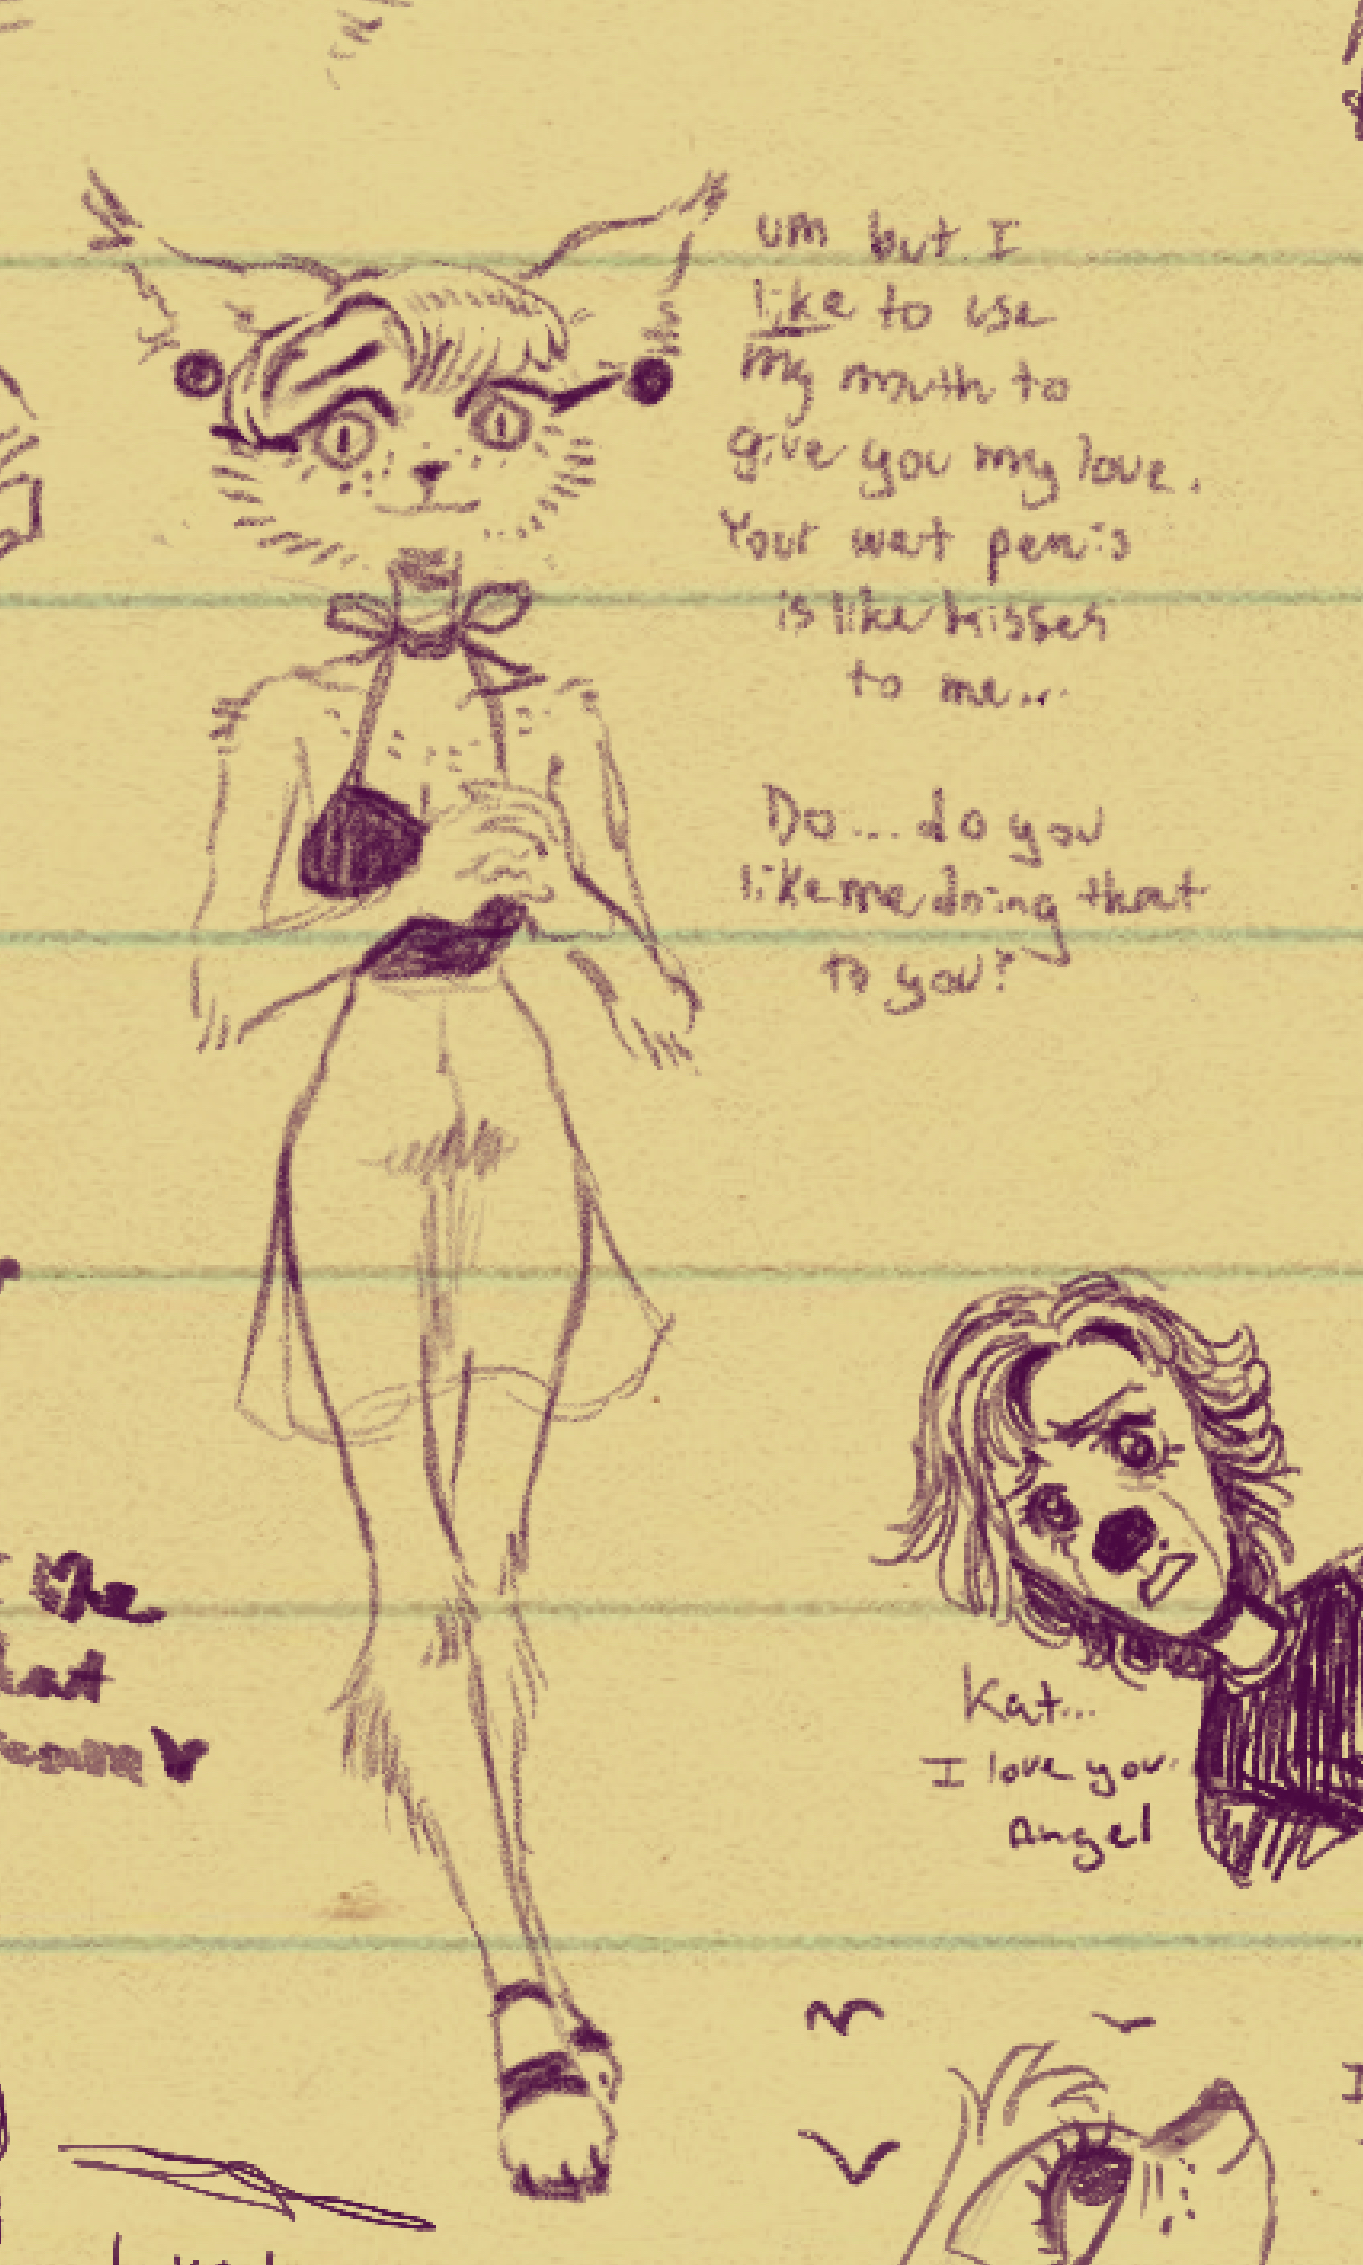 um but I
like to use
my mouth to
give you my love.
Your wet penis
is like kisses
to me...
Do...do you
like me doing that
to you?
Kat...
I love you
Angel